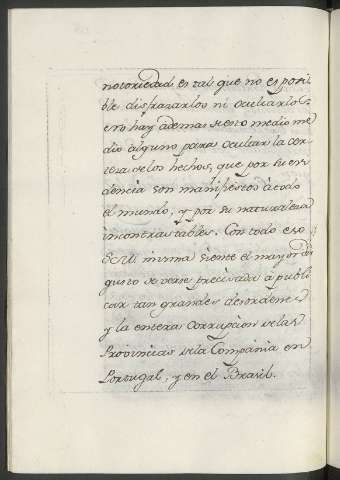 notoriedad es tal que no es posi
ble disfrazarlos ni ocultarlos
ero hay ademas de esto medio me
dio alguno para ocultar la cer
teza de los hechos, que por su evi
dencia son manifiestos à todo
el mundo, y por su naturaleza
incontrastables. Con todo eso
S.M. misma siente el mayor dis
gusto de verse precisada à publi
car tan grandes desordenes
y la entera corrupcion de las
Provincias de la Compañia en
Portugal, y en el Brasil.